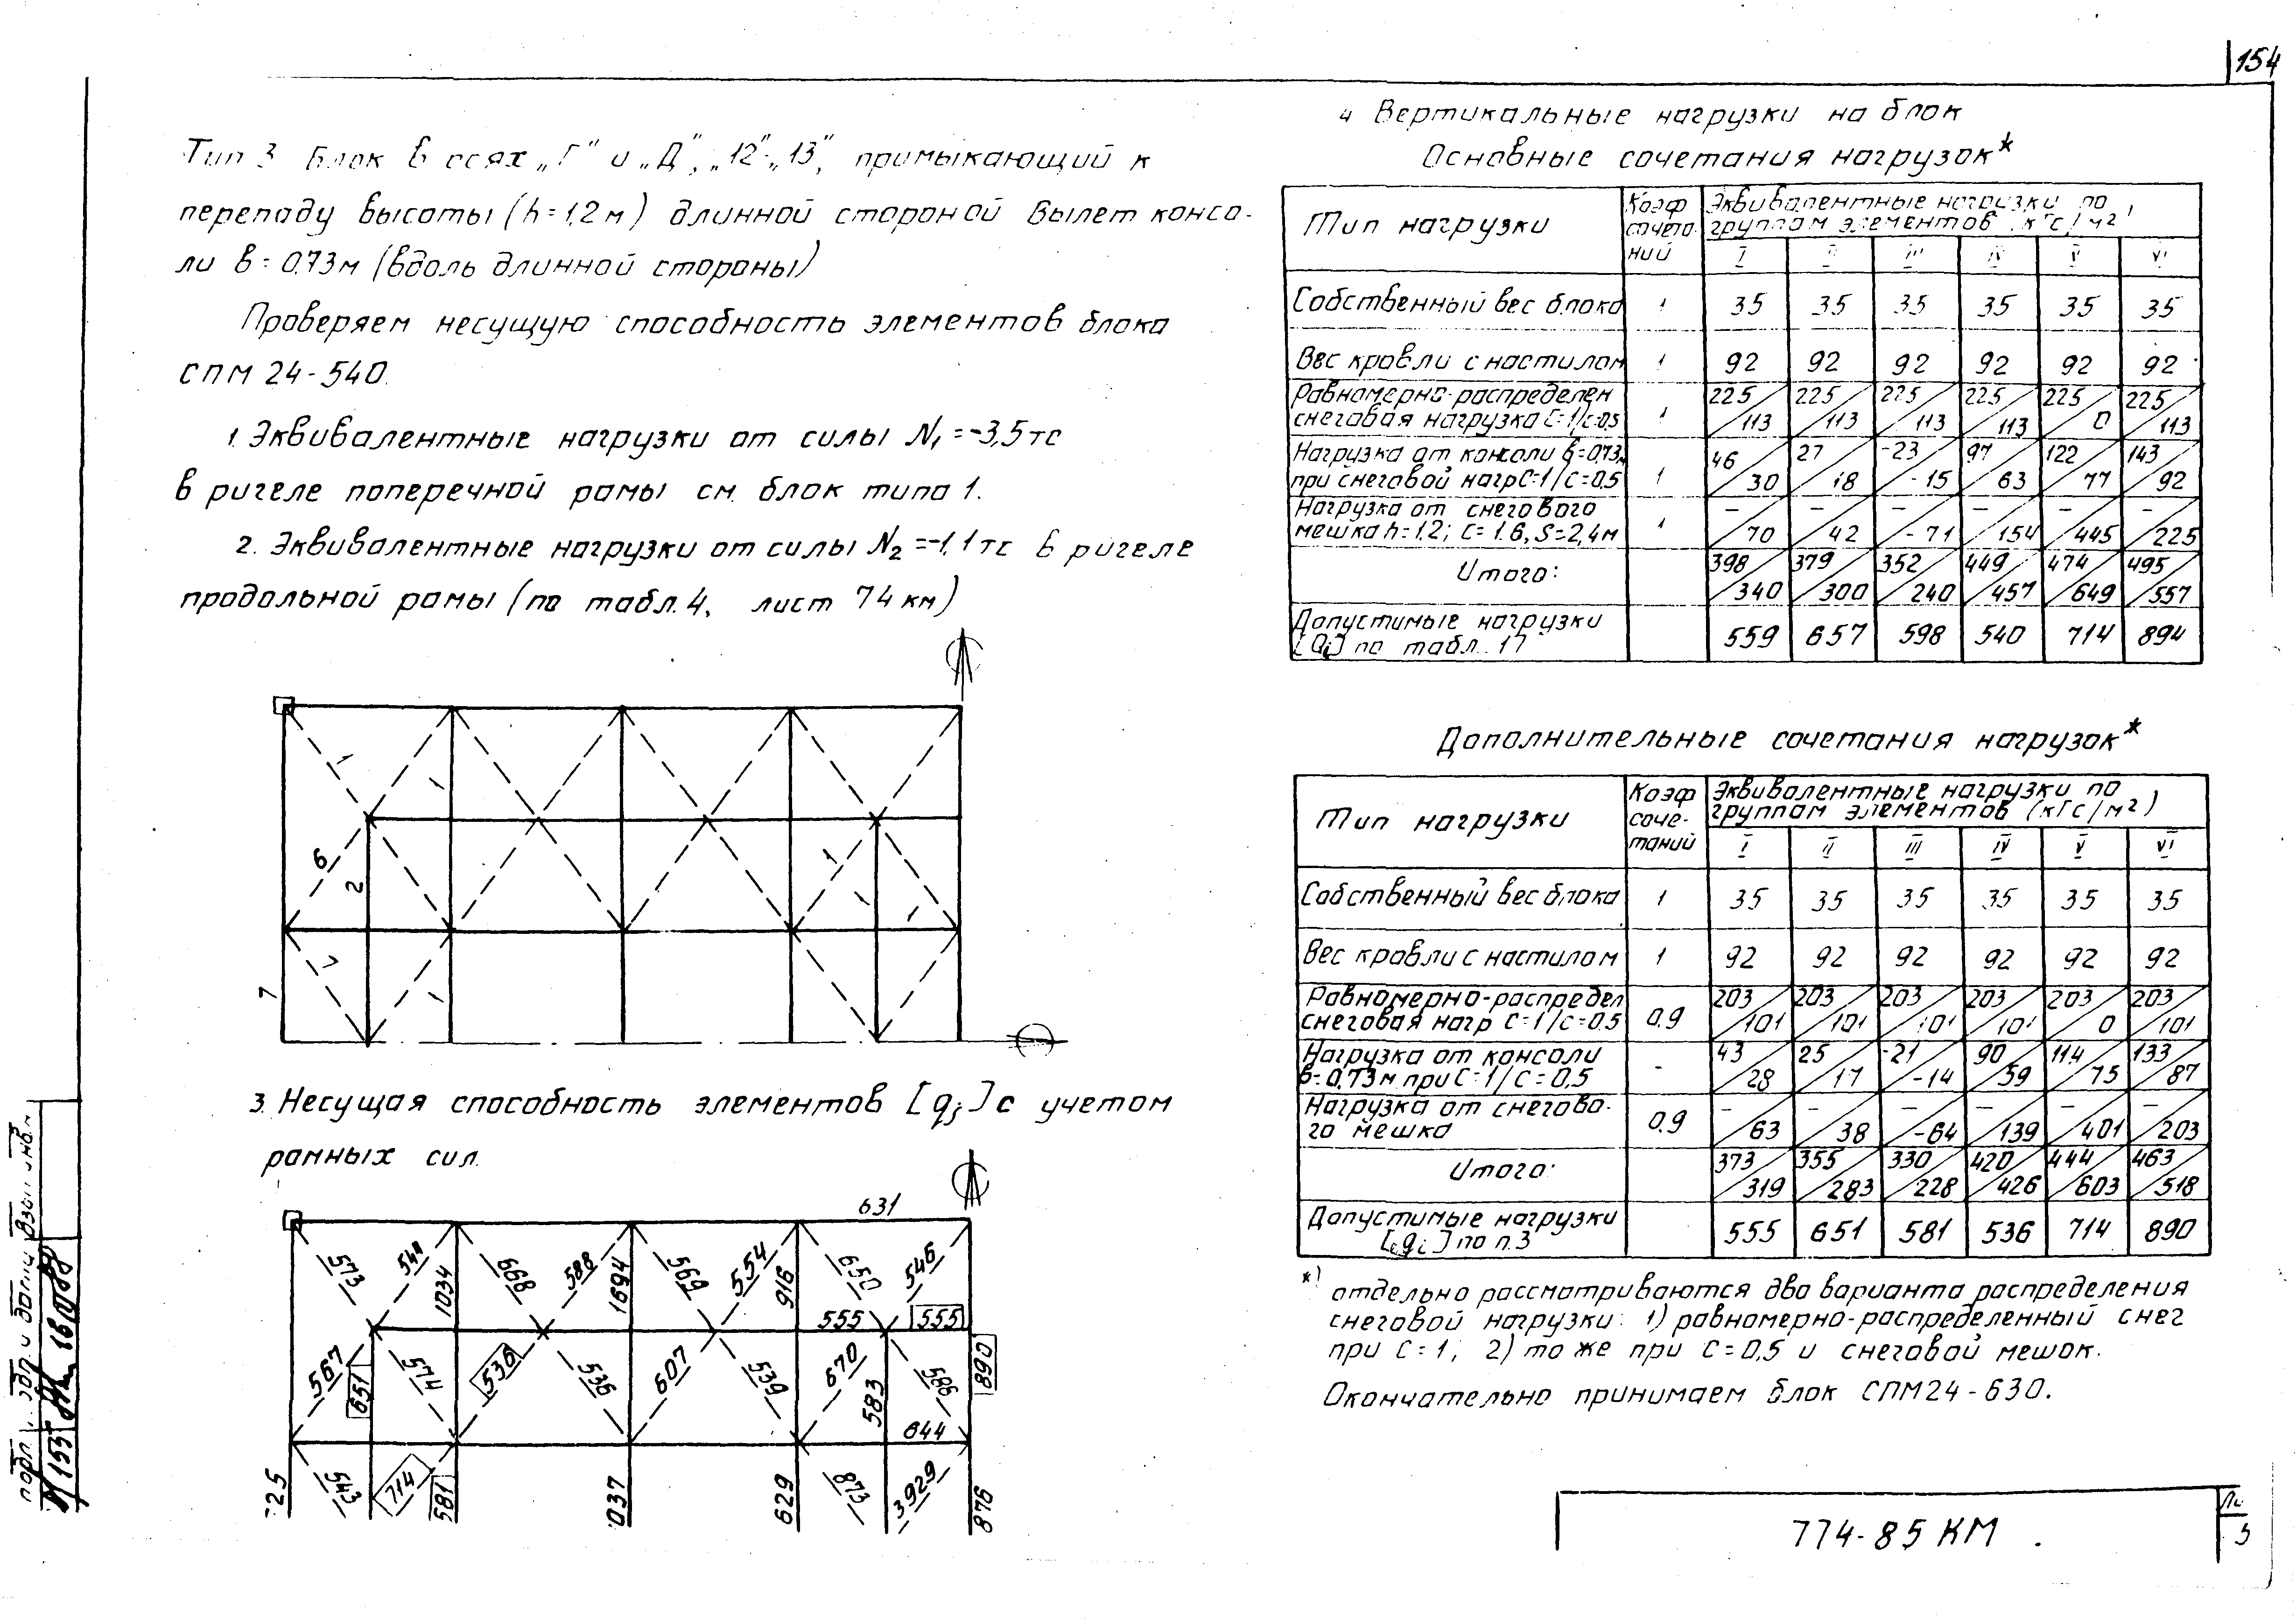 154
Тип 3 Блок в осях „Г" и „Д", „12"-„13", примыкающий к
перепаду высоты (h=1,2м) длинной стороной Вылет консо-
ли в=0,73м (вдоль длинной стороны)
Проверяем несущую способность элементов блока
СПМ 24-540.
1. Эквивалентные нагрузки от силы N₁=-3,5тс
в ригеле поперечной рамы см. блок типа 1.
2. Эквивалентные нагрузки от силы N₂=-1,1тс в ригеле
продольной рамы (по табл.4, лист 74 км)
1 1
6 2 1 1 1
7 1 1
3. Несущая способность элементов [qj] с учетом
рамных сил.
631
573 541 1034 668 588 1694 569 554 916 650 546
555 555
567 651 574 536 536 607 539 670 583 586 890
644
543 714 581 037 629 873 3929 876
4 Вертикальные нагрузки на блок
Основные сочетания нагрузок*
Тип нагрузки Коэф сочета- ний Эквивалентные нагрузки по группам элементов (кгс/м²)
I II III IV V VI
Собственный вес блока 1 35 35 35 35 35 35
Вес кровли с настилом 1 92 92 92 92 92 92
Равномерно-распределен снеговая нагрузка С=1/с=0,5 1 225/113 225/113 225/113 225/113 225/0 225/113
Нагрузка от консоли в=0,73м при снеговой нагр С=1/С=0,5 1 46/30 27/18 -23/-15 97/63 122/77 143/92
Нагрузка от снегового мешка h=1.2; С=1.6, S=2,4м 1 –/70 –/42 –/-71 –/154 –/445 –/225
Итого: 398/340 379/300 352/240 449/457 474/649 495/557
Допустимые нагрузки [Qi] по табл. 17 559 657 598 540 714 894
Дополнительные сочетания нагрузок*
Тип нагрузки Коэф соче- таний Эквивалентные нагрузки по группам элементов (кгс/м²)
I II III IV V VI
Собственный вес блока 1 35 35 35 35 35 35
Вес кровли с настилом 1 92 92 92 92 92 92
Равномерно-распредел снеговая нагр С=1/с=0.5 0.9 203/101 203/101 203/101 203/101 203/0 203/101
Нагрузка от консоли в=0,73м при С=1/С=0,5 - 43/28 25/17 -21/-14 90/59 114/75 133/87
Нагрузка от снегово- го мешка 0.9 –/63 –/38 –/-64 –/139 –/401 –/203
Итого: 373/319 355/283 330/228 420/426 444/603 463/518
Допустимые нагрузки [qi] по п.3 555 651 581 536 714 890
*) отдельно рассматриваются два варианта распределения
снеговой нагрузки: 1) равномерно-распределенный снег
при С=1; 2) то же при С=0,5 и снеговой мешок.
Окончательно принимаем блок СПМ24-630.
774-85 КМ